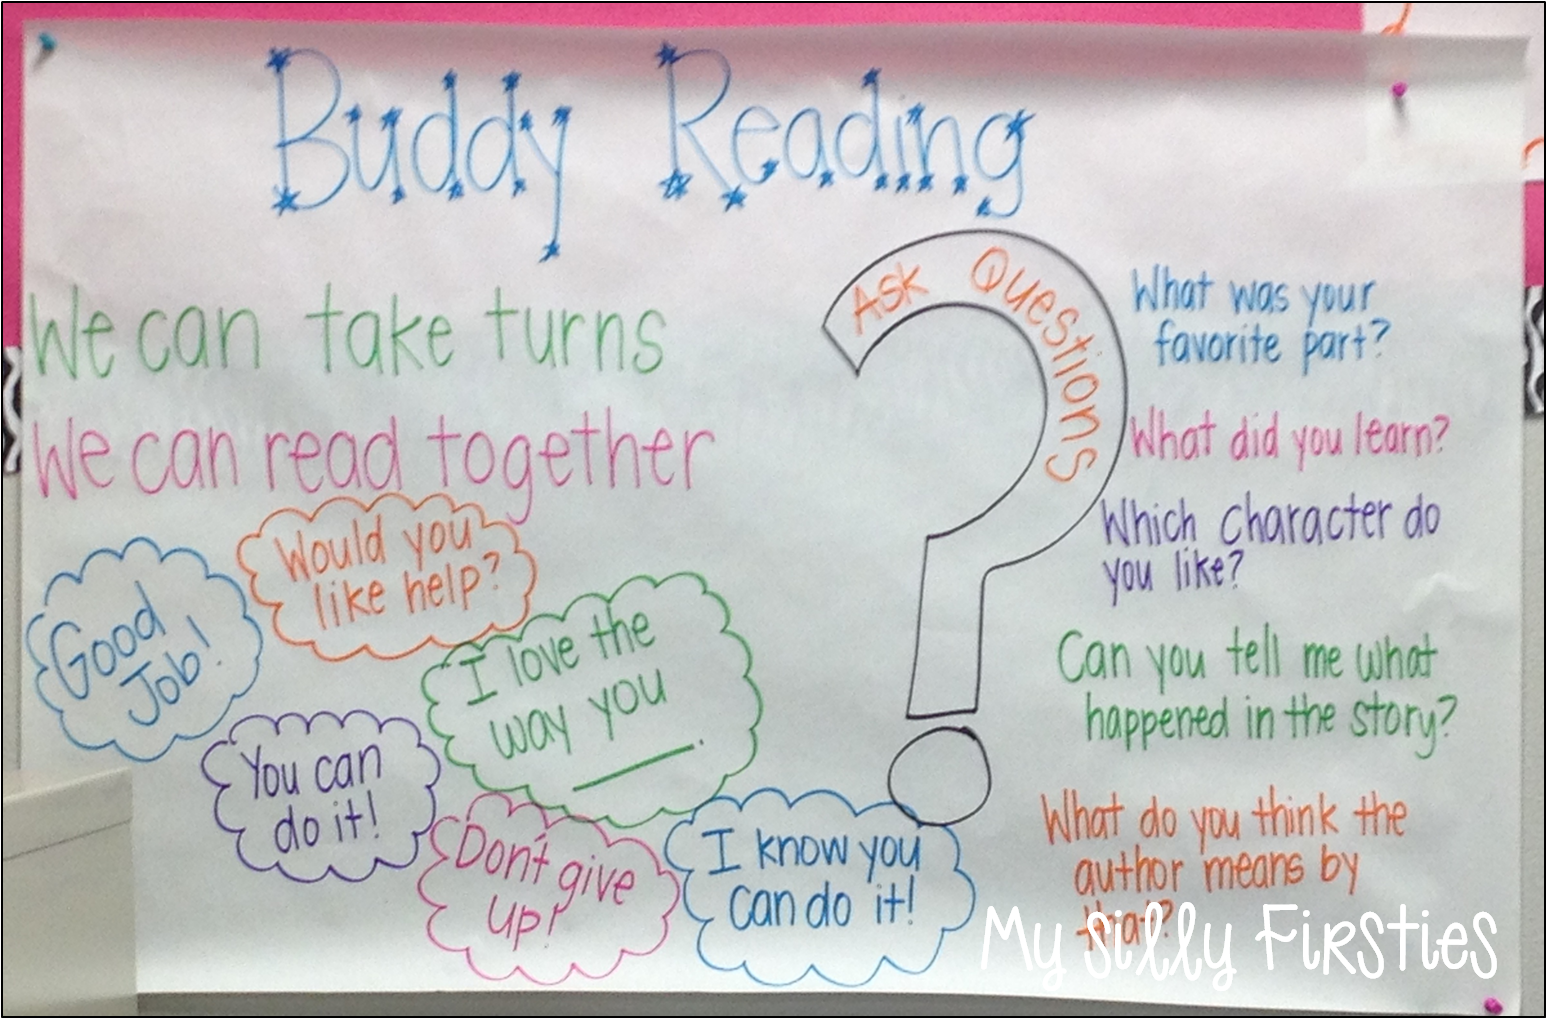 Buddy Reading
We can take turns
We can read together
Good
Job!
Would you
like help?
I love the
way you
______.
You can
do it!
Don't give
up!
I know you
can do it!
Ask Questions
What was your
favorite part?
What did you learn?
Which character do
you like?
Can you tell me what
happened in the story?
What do you think the
author means by
that?
My Silly Firsties